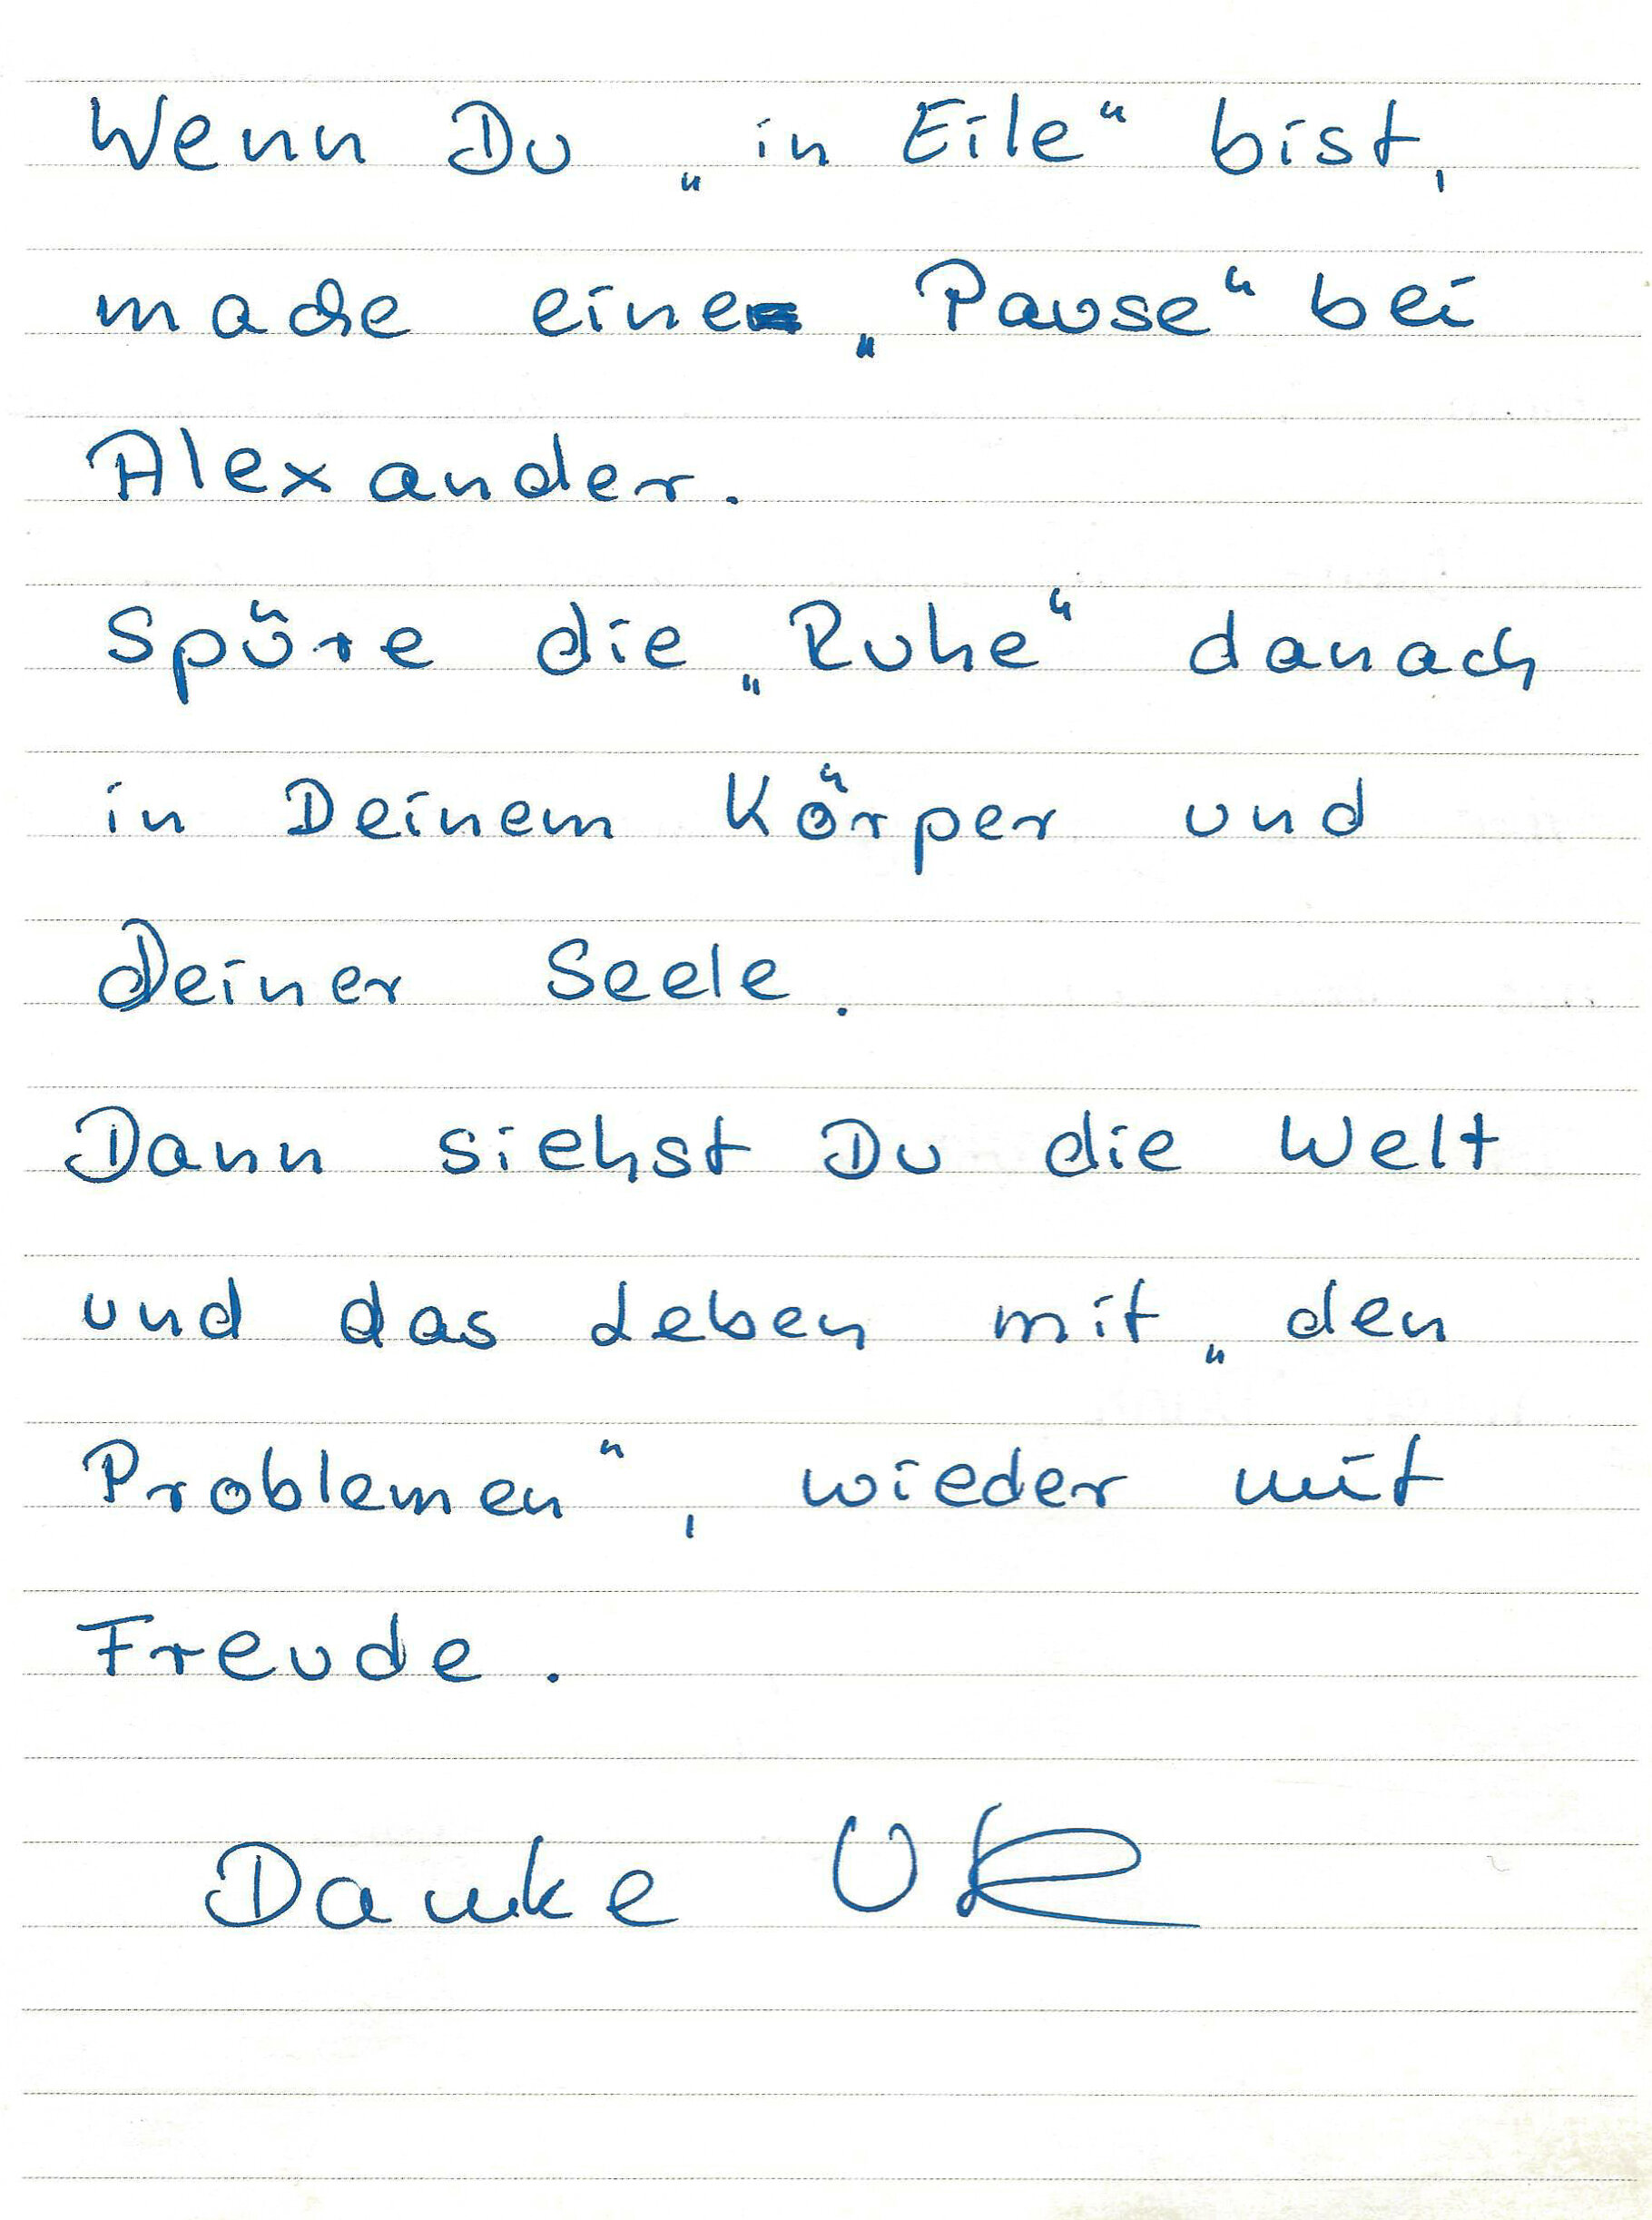 Wenn Du „in Eile“ bist,
mache eine „Pause“ bei
Alexander.
Spüre die „Ruhe“ danach
in Deinem Körper und
Deiner Seele.
Dann siehst Du die Welt
und das Leben mit „den
Problemen“, wieder mit
Freude.
Danke